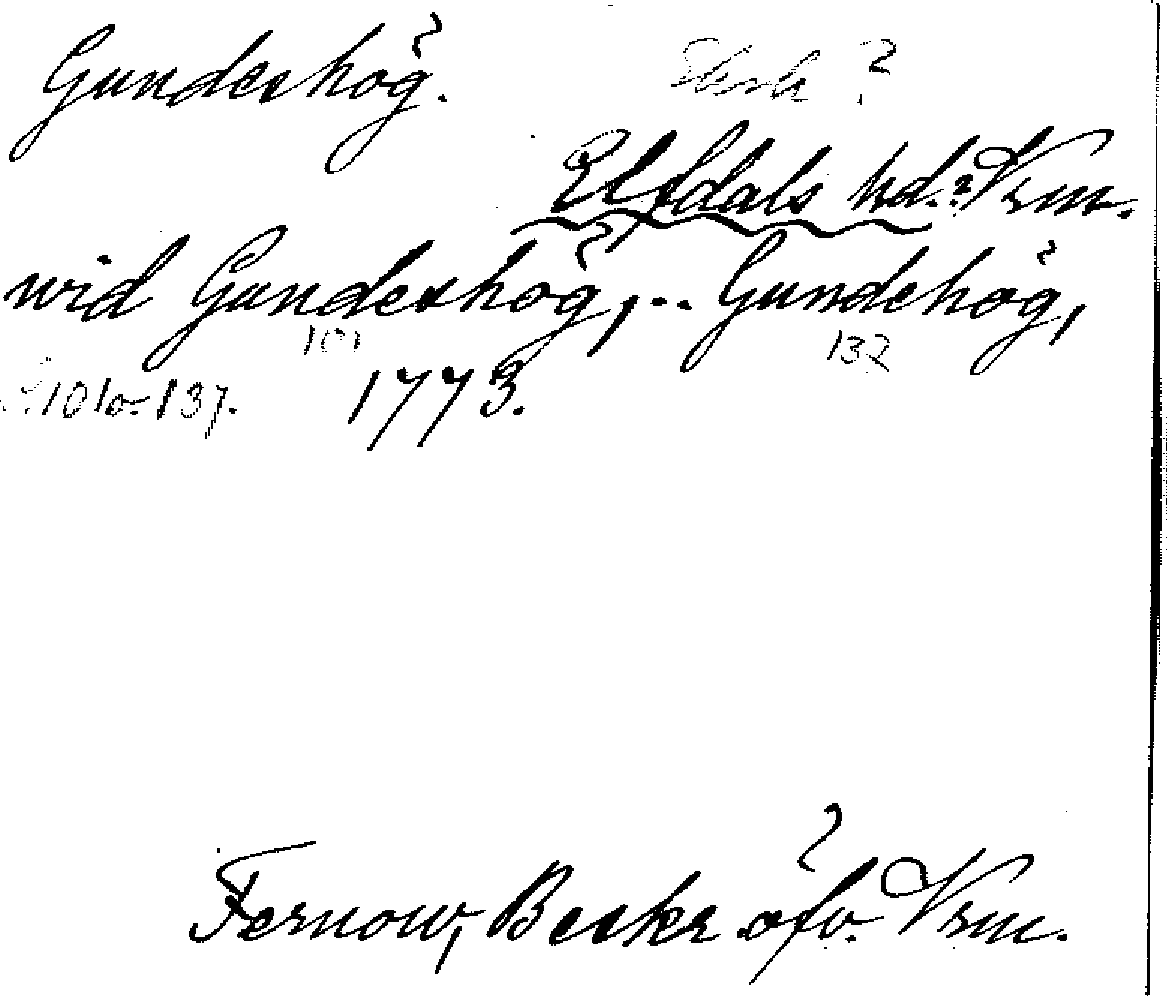 Gundershög.
Elfdals hd.? Vrm.
wid Gundershög, .. Gundehög,
101 132
S. 101 o. 137. 1773.
Fernow, Beskr öfv. Vrm.